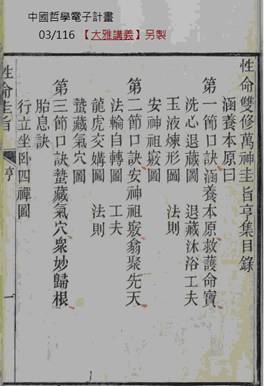 中國哲學電子計畫
03/116 【大雅講義】另製
性命雙修萬神圭旨亨集目錄
涵養本原曰
第一節口訣涵養本原救護命寶
洗心退藏圖 退藏沐浴工夫
玉液煉形圖 法則
安神祖竅圖
第二節口訣安神祖竅翕聚先天
法輪自轉圖 工夫
龍虎交媾圖 法則
蟄藏氣穴圖
第三節口訣蟄藏氣穴眾妙歸根
胎息訣
行立坐臥四禪圖
性命圭旨 亨 一